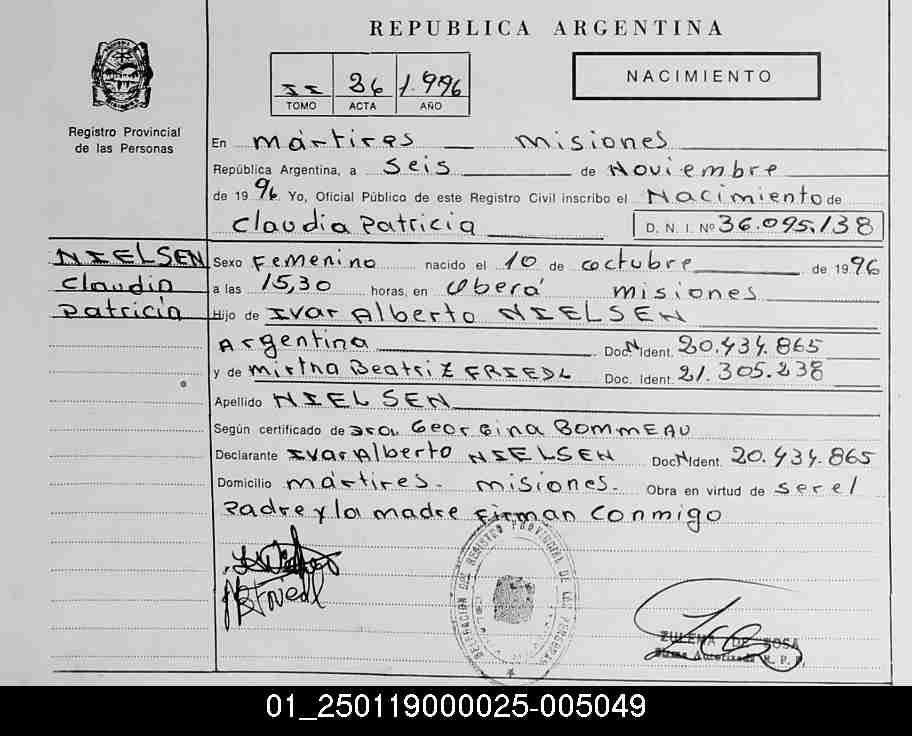 REPUBLICA ARGENTINA
II 36 1.996
TOMO ACTA AÑO
NACIMIENTO
Registro Provincial
de las Personas
En mártires misiones
República Argentina, a Seis de Noviembre
de 1996 Yo, Oficial Público de este Registro Civil inscribo el Nacimiento de
Claudia Patricia D. N. I. Nº 36.095.138
NIELSEN
Claudia
Patricia
Sexo Femenino nacido el 10 de octubre de 1996
a las 15,30 horas, en Oberá misiones
Hijo de Ivar Alberto NIELSEN
Argentina Doc. N Ident. 20.434.865
y de mirtha Beatriz FRIEDL Doc. Ident. 21.305.238
Apellido NIELSEN
Según certificado de Dra. Georgina BOMMEAU
Declarante Ivar Alberto NIELSEN Doc. N Ident. 20.434.865
Domicilio mártires. misiones. Obra en virtud de ser el
Padre y la madre Firman conmigo
ZULEMA DE SOSA
Firma Autorizada R. P. P.
01_250119000025-005049